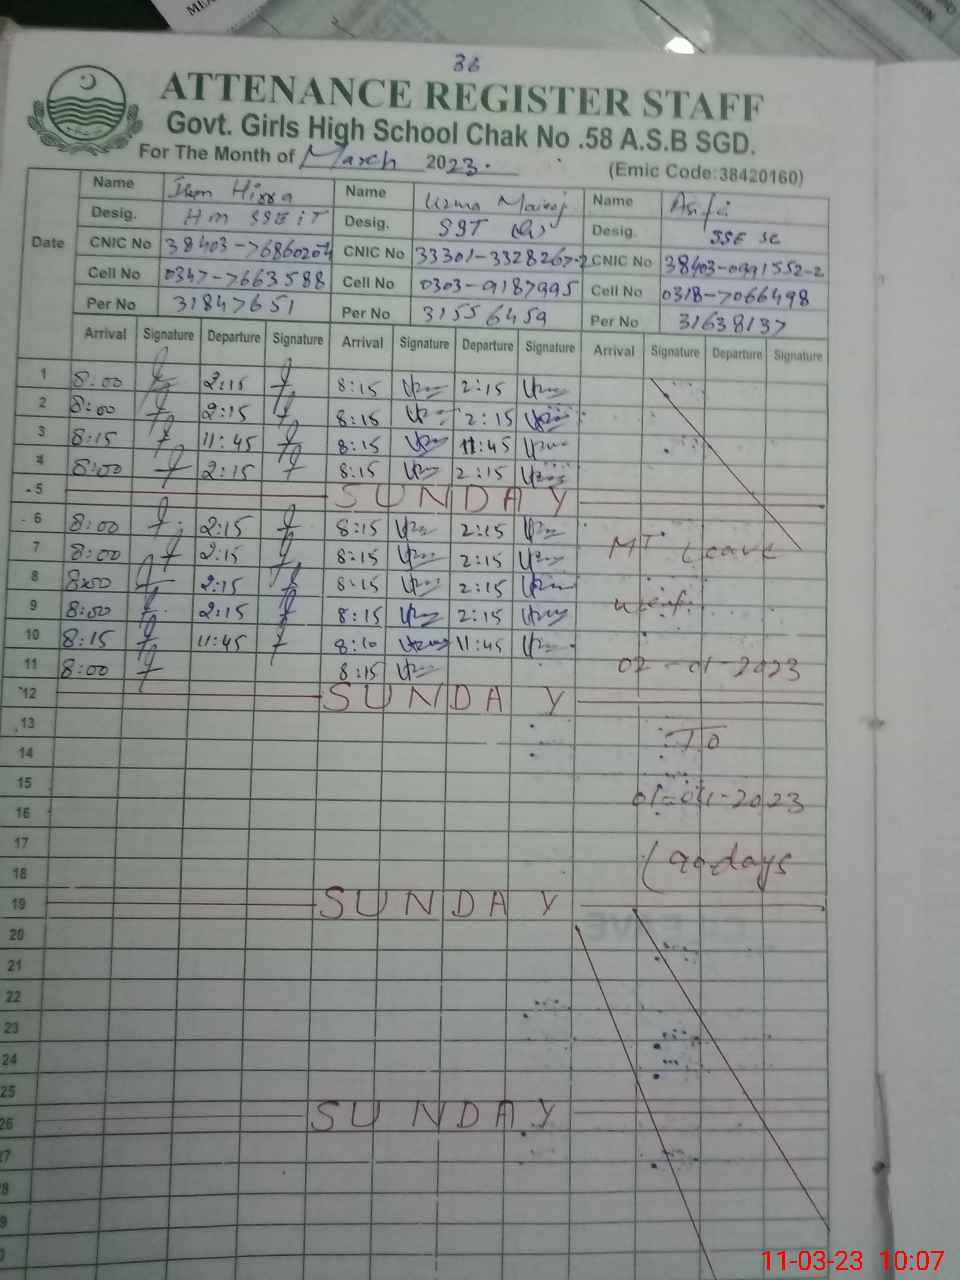 36
ATTENANCE REGISTER STAFF
Govt. Girls High School Chak No .58 A.S.B SGD.
For The Month of March 2023.
(Emic Code:38420160)
Date
Name Hirra Name Uzma Name Asifa
Desig. Hm SSE iT Desig. SST Desig. SSE sc
CNIC No 38403-76860204 CNIC No 33301-3328267-2 CNIC No 38403-0991552-2
Cell No 0347-7663588 Cell No 0303-9187995 Cell No 0318-7066498
Per No 31847651 Per No 31556459 Per No 31638137
Arrival Signature Departure Signature Arrival Signature Departure Signature Arrival Signature Departure Signature
1 8:00 2:15 8:15 2:15
2 8:00 2:15 8:15 2:15
3 8:15 11:45 8:15 11:45
4 8:00 2:15 8:15 2:15
5 SUNDAY
6 8:00 2:15 8:15 2:15
7 8:00 2:15 8:15 2:15 MT Leave
8 8:00 2:15 8:15 2:15
9 8:00 2:15 8:15 2:15 w.e.f.
10 8:15 11:45 8:10 11:45
11 8:00 8:15 02-01-2023
12 SUNDAY
13 TO
14
15
16 01-04-2023
17
18 (90 days
19 SUNDAY
20
21
22
23
24
25
26 SUNDAY
27
8
9
0
11-03-23 10:07